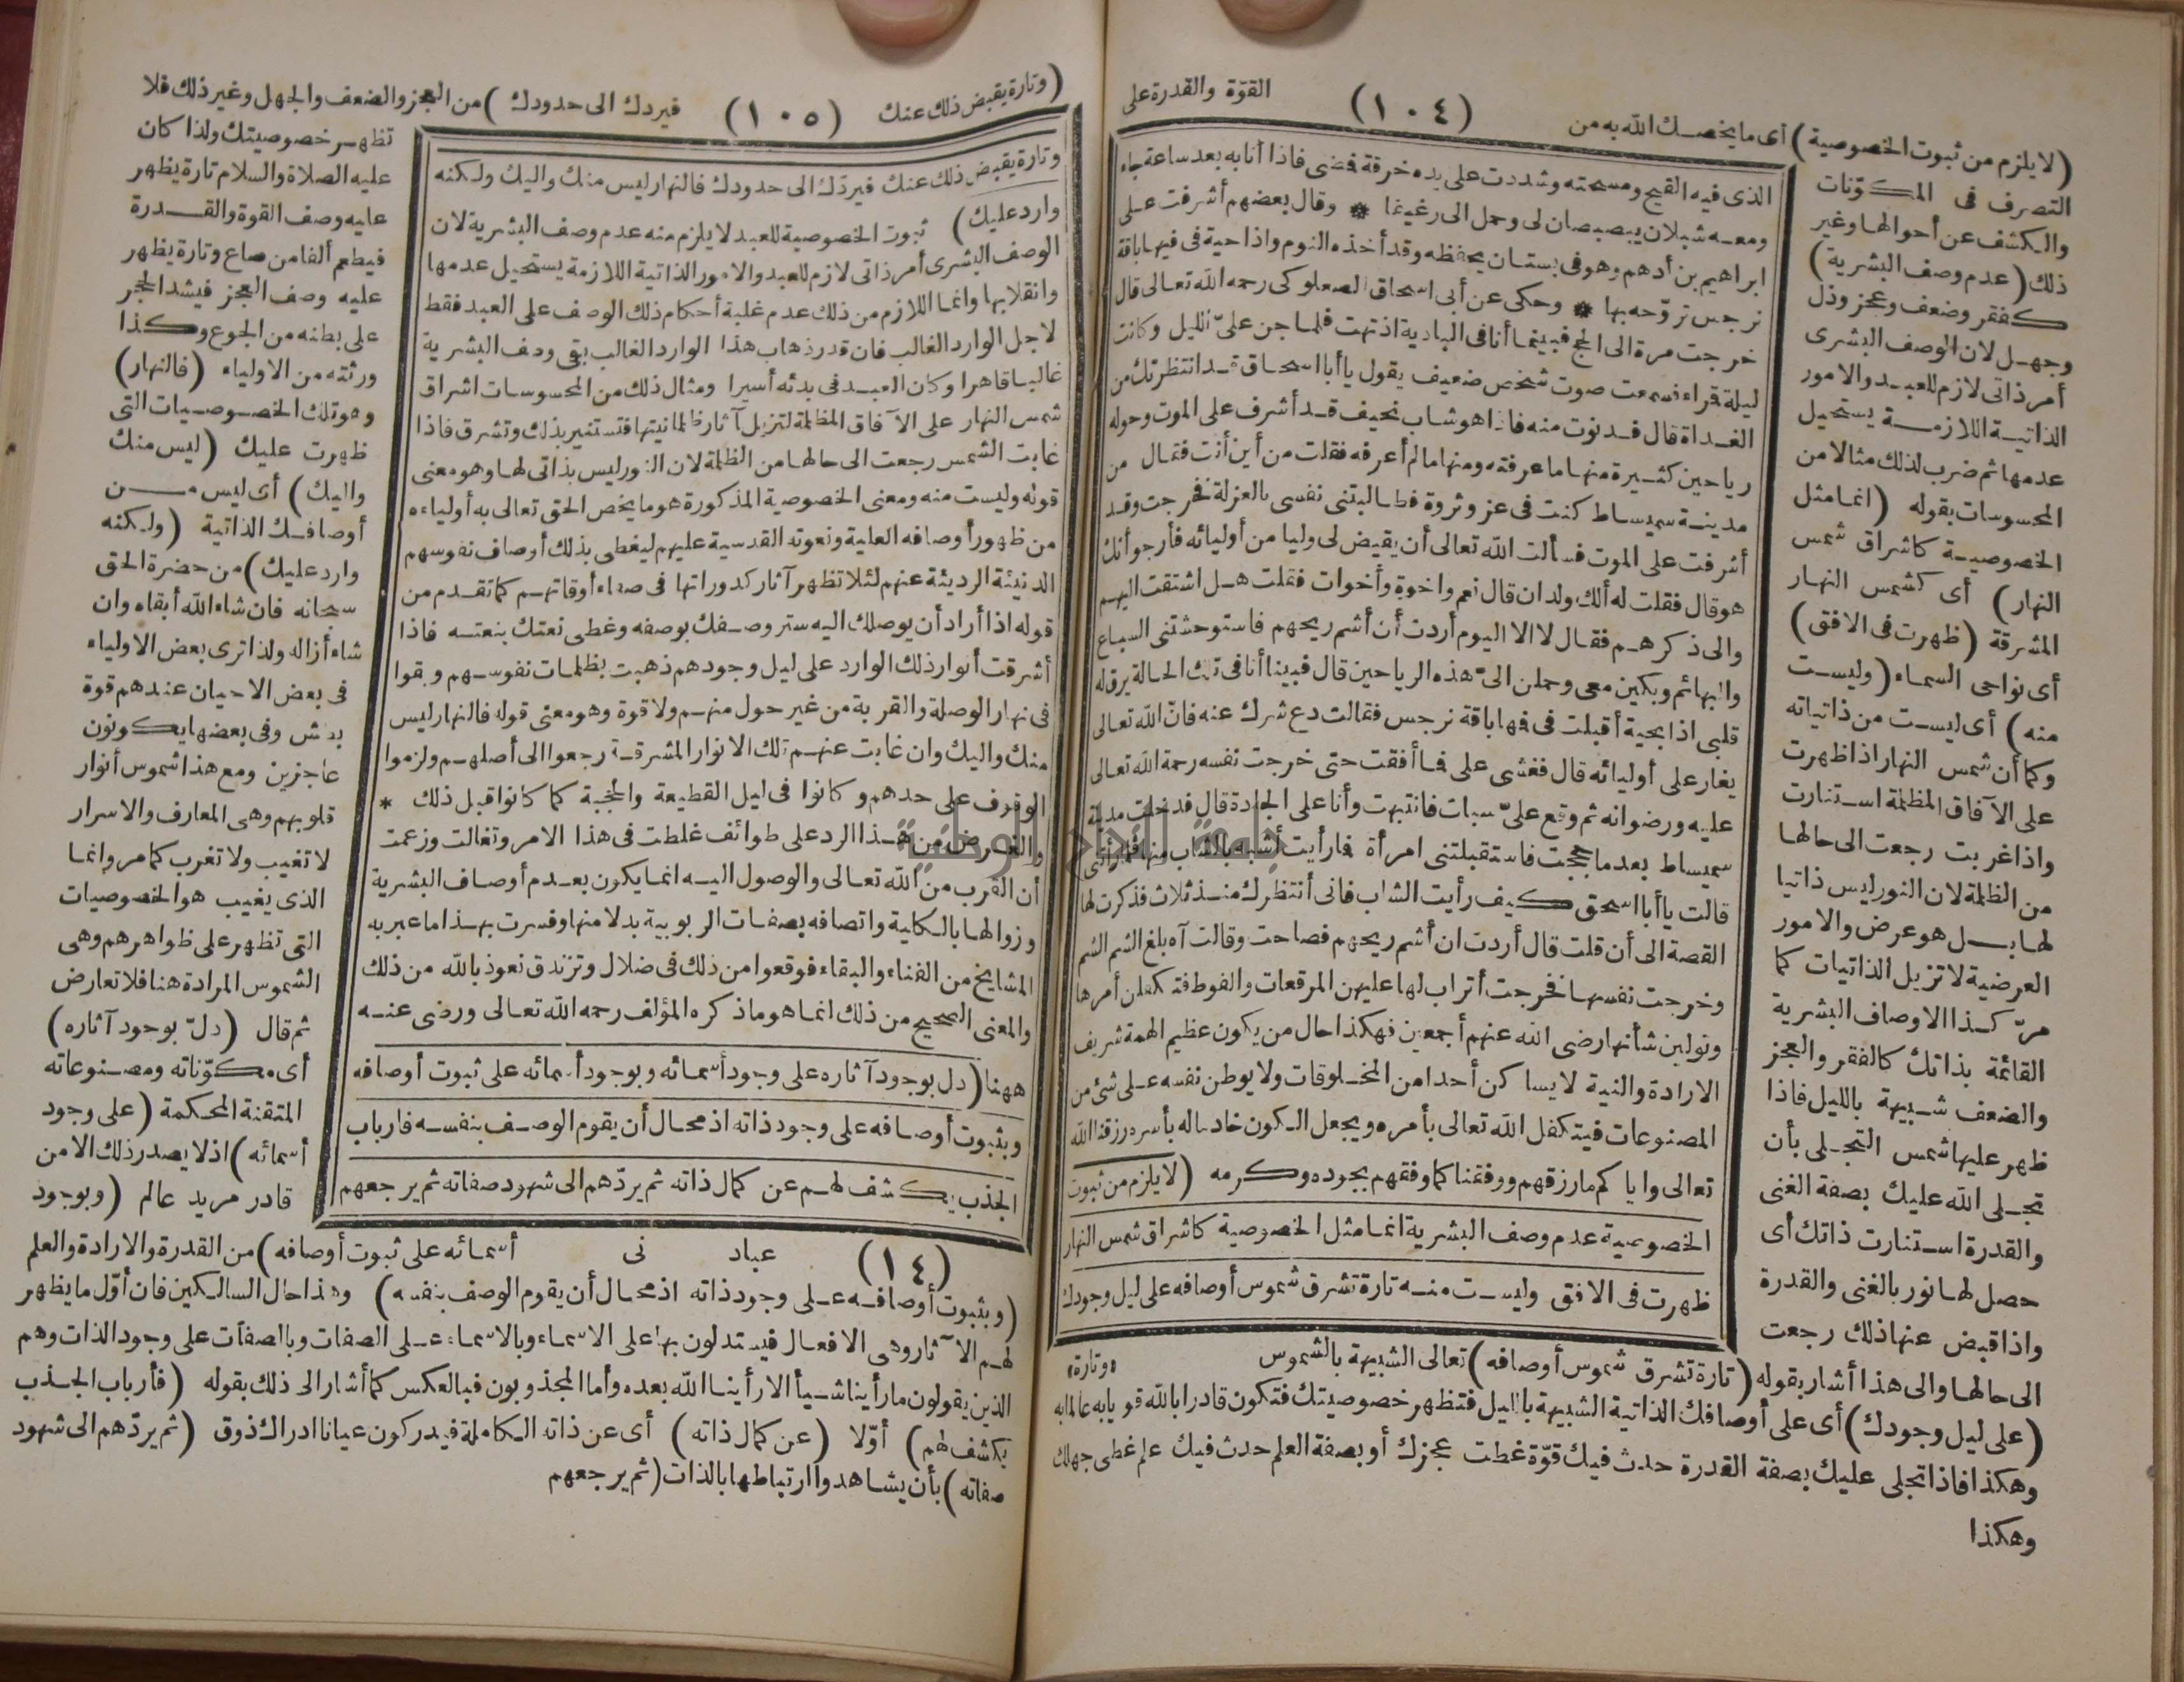 (١٠٤)
(لا يلزم من ثبوت الخصوصية) أى ما يخصك الله به من القوّة والقدرة على
التصرف فى المكوّنات
والكشف عن أحوالها وغير
ذلك (عدم وصف البشرية)
كفقر وضعف وعجز وذل
وجهل لان الوصف البشرى
أمر ذاتى لازم للعبد والامور
الذاتية اللازمة يستحيل
عدمها ثم ضرب لذلك مثالا من
المحسوسات بقوله (انما مثل
الخصوصية كاشراق شمس
النهار) أى كشمس النهار
المشرقة (ظهرت فى الافق)
أى نواحى السماء (وليست
منه) أى ليست من ذاتياته
وكما أن شمس النهار اذا ظهرت
على الآفاق المظلمة استنارت
واذا غربت رجعت الى حالها
من الظلمة لان النور ليس ذاتيا
لها بل هو عرض والامور
العرضية لا تزيل الذاتيات كما
مرّ كذا الاوصاف البشرية
القائمة بذاتك كالفقر والعجز
والضعف شبيهة بالليل فاذا
ظهر عليها شمس التجلى بأن
تجلى الله عليك بصفة الغنى
والقدرة استنارت ذاتك أى
حصل لها نور بالغنى والقدرة
واذا قبض عنها ذلك رجعت
الى حالها والى هذا أشار بقوله (تارة تشرق شموس أوصافه) تعالى الشبيهة بالشموس
(على ليل وجودك) أى على أوصافك الذاتية الشبيهة بالليل فتظهر خصوصيتك فتكون قادرا بالله قويا به عالما به
وهكذا فاذا تجلى عليك بصفة القدرة حدث فيك قوّة غطت عجزك أو بصفة العلم حدث فيك علم غطى جهلك
وهكذا
«وتارة»
الذى فيه القيح ومسحته وشددت على يده خرقة فضى فاذا أنا به بعد ساعة جاء
ومعه شبلان يبصبصان لى وحمل الى رغيفا * وقال بعضهم أشرفت على
ابراهيم بن أدهم وهو فى بستان يحفظه وقد أخذه النوم واذا حية فى فيها باقة
نرجس تروّحه بها * وحكى عن أبى اسحاق الصعلوكى رحمه الله تعالى قال
خرجت مرة الى الحج فبينما أنا فى البادية اذ تهت فلما جن علىّ الليل وكانت
ليلة قراء سمعت صوت شخص ضعيف يقول يا أبا اسحاق قد انتظرتك من
الغداة قال فدنوت منه فاذا هو شاب نحيف قد أشرف على الموت وحوله
رياحين كثيرة منها ما عرفته ومنها ما لم أعرفه فقلت من أين أنت فقال من
مدينة سميساط كنت فى عز وثروة فطالبتنى نفسى بالعزلة فخرجت وقد
أشرفت على الموت فسألت الله تعالى أن يقيض لى وليا من أوليائه فأرجو أنك
هو قال فقلت له ألك والدان قال نعم واخوة وأخوات فقلت هل اشتقت اليهم
والى ذكرهم فقال لا الا اليوم أردت أن أشم ريحهم فاستوحشتنى السباع
والبهائم وبكين معى وحملن الىّ هذه الرياحين قال فبينا أنا فى تلك الحالة يرق له
قلبى اذا بحية أقبلت فى فها باقة نرجس فقالت دع شرك عنه فانّ الله تعالى
يغار على أوليائه قال فغشى على فما أفقت حتى خرجت نفسه رحمة الله تعالى
عليه ورضوانه ثم وقع علىّ سبات فانتبهت وأنا على الجادة قال فدخلت مدينة
سميساط بعد ما حججت فاستقبلتنى امرأة فما رأيت أشبه بالشاب منها فلما رأتنى
قالت يا أبا اسحق كيف رأيت الشاب فانى أنتظرك منذ ثلاث فذكرت لها
القصة الى أن قلت قال أردت ان أشم ريحهم فصاحت وقالت آه بلغ الشم الشم
وخرجت نفسها فخرجت أتراب لها عليهن المرقعات والفوط فتكفلن أمرها
وتولين شأنها رضى الله عنهم أجمعين فهكذا حال من يكون عظيم الهمة شريف
الارادة والنية لا يساكن أحدا من المخلوقات ولا يوطن نفسه على شئ من
المصنوعات فيتكفل الله تعالى بأمره ويجعل الكون خادما له بأسره رزقنا الله
تعالى واياكم ما رزقهم ووفقنا كما وفقهم بجوده وكرمه (لا يلزم من ثبوت
الخصوصية عدم وصف البشرية انما مثل الخصوصية كاشراق شمس النهار
ظهرت فى الافق وليست منه تارة تشرق شموس أوصافه على ليل وجودك
(١٠٥)
(وتارة يقبض ذلك عنك فيردك الى حدودك) من العجز والضعف والجهل وغير ذلك فلا
تظهر خصوصيتك ولذا كان
عليه الصلاة والسلام تارة يظهر
عليه وصف القوة والقدرة
فيطعم ألفا من صاع وتارة يظهر
عليه وصف العجز فيشد الحجر
على بطنه من الجوع وكذا
ورثته من الاولياء (فالنهار)
وهو تلك الخصوصيات التى
ظهرت عليك (ليس منك
واليك) أى ليس من
أوصافك الذاتية (ولكنه
وارد عليك) من حضرة الحق
سبحانه فان شاء الله أبقاه وان
شاء أزاله ولذا ترى بعض الاولياء
فى بعض الاحيان عندهم قوة
بطش وفى بعضها يكونون
عاجزين ومع هذا شموس أنوار
قلوبهم وهى المعارف والاسرار
لا تغيب ولا تغرب كما مر وانما
الذى يغيب هو الخصوصيات
التى تظهر على ظواهرهم وهى
الشموس المرادة هنا فلا تعارض
ثم قال (دلّ بوجود آثاره)
أى مكوّناته ومصنوعاته
المتقنة المحكمة (على وجود
أسمائه) اذ لا يصدر ذلك الا من
قادر مريد عالم (وبوجود
أسمائه على ثبوت أوصافه) من القدرة والارادة والعلم
(وبثبوت أوصافه على وجود ذاته اذ محال أن يقوم الوصف بنفسه) وهذا حال السالكين فان أوّل ما يظهر
لهم الآثار وهى الافعال فيستدلون بها على الاسماء وبالاسماء على الصفات وبالصفات على وجود الذات وهم
الذين يقولون ما رأينا شيأ الا رأينا الله بعده وأما المجذوبون فبالعكس كما أشار الى ذلك بقوله (فأرباب الجذب
يكشف لهم) أوّلا (عن كمال ذاته) أى عن ذاته الكاملة فيدركون عيانا ادراك ذوق (ثم يردّهم الى شهود
صفاته) بأن يشاهدوا ارتباطها بالذات (ثم يرجعهم
وتارة يقبض ذلك عنك فيردّك الى حدودك فالنهار ليس منك واليك ولكنه
وارد عليك) ثبوت الخصوصية للعبد لا يلزم منه عدم وصف البشرية لان
الوصف البشرى أمر ذاتى لازم للعبد والامور الذاتية اللازمة يستحيل عدمها
وانقلابها وانما اللازم من ذلك عدم غلبة أحكام ذلك الوصف على العبد فقط
لاجل الوارد الغالب فان قدر ذهاب هذا الوارد الغالب بقى وصف البشرية
غالبا قاهرا وكان العبد فى يديه أسيرا ومثال ذلك من المحسوسات اشراق
شمس النهار على الآفاق المظلمة لتزيل آثار ظلمانيتها فتستنير بذلك وتشرق فاذا
غابت الشمس رجعت الى حالها من الظلمة لان النور ليس بذاتى لها وهو معنى
قوله وليست منه ومعنى الخصوصية المذكورة هو ما يخص الحق تعالى به أولياءه
من ظهور أوصافه العلية ونعوته القدسية عليهم ليغطى بذلك أوصاف نفوسهم
الدنيئة الرديئة عنهم لئلا تظهر آثار كدوراتها فى صفاء أوقاتهم كما تقدم من
قوله اذا أراد أن يوصلك اليه ستر وصفك بوصفه وغطى نعتك بنعته فاذا
أشرقت أنوار ذلك الوارد على ليل وجودهم ذهبت بظلمات نفوسهم وبقوا
فى نهار الوصلة والقربة من غير حول منهم ولا قوة وهو معنى قوله فالنهار ليس
منك واليك وان غابت عنهم تلك الانوار المشرقة رجعوا الى أصلهم ولزموا
الوقوف على حدهم وكانوا فى ليل القطيعة والحجبة كما كانوا قبل ذلك *
والغرض من هذا الرد على طوائف غلطت فى هذا الامر وتغالت وزعمت
أن القرب من الله تعالى والوصول اليه انما يكون بعدم أوصاف البشرية
وزوالها بالكلية واتصافه بصفات الربوبية بدلا منها وفسرت بهذا ما عبر به
المشايخ من الفناء والبقاء فوقعوا من ذلك فى ضلال وتزندق نعوذ بالله من ذلك
والمعنى الصحيح من ذلك انما هو ما ذكره المؤلف رحمه الله تعالى ورضى عنه
ههنا (دل بوجود آثاره على وجود أسمائه وبوجود أسمائه على ثبوت أوصافه
وبثبوت أوصافه على وجود ذاته اذ محال أن يقوم الوصف بنفسه فارباب
الجذب يكشف لهم عن كمال ذاته ثم يردّهم الى شهود صفاته ثم يرجعهم
(١٤) عباد نى
جامعة النجاح الوطنية